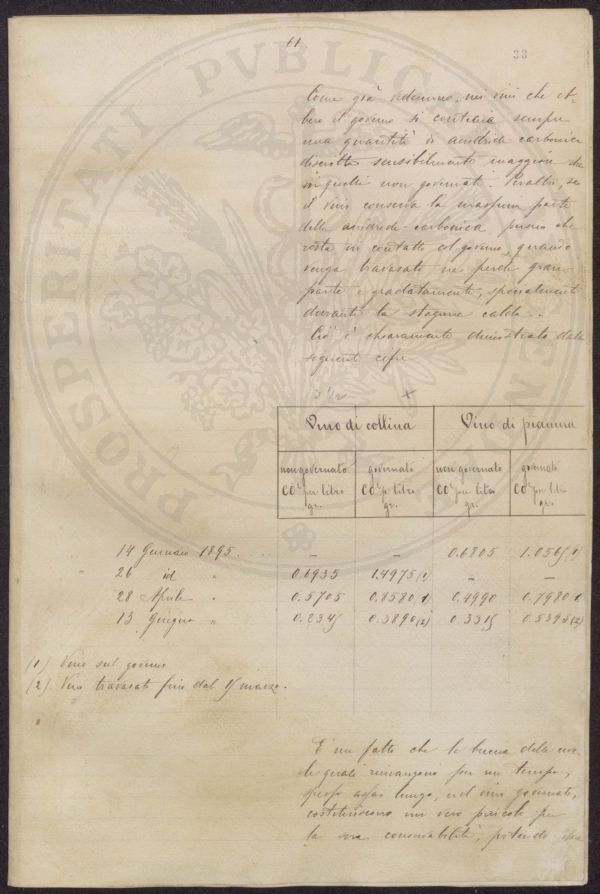 61
33
PROSPERITATI PVBLICAE
Come già vedemmo, nei vini che eb-
bero il governo si contiene sempre
una quantità di anidride carbonica
disciolta sensibilmente maggiore che
in quelli non governati. Peraltro, se
il vino conserva la maggior parte
della anidride carbonica finchè
resta in contatto col governo, quando
venga travasato ne perde gran
parte e gradatamente, specialmente
durante la stagione calda.
Ciò è chiaramente dimostrato dalle
seguenti cifre
Vino di collina Vino di pianura
non governato governato non governato governato
CO² per litro CO² p. litro CO² per litro CO² per litro
gr. gr. gr. gr.
14 Gennaio 1895 ..... – – 0.6805 1.0565 (1)
26 id " 0.6935 1.4975 (1) – –
28 Aprile " 0.5705 0.8520 (1) 0.4990 0.7980 (1)
13 Giugno " 0.2345 0.3890 (2) 0.3315 0.5395 (2)
(1) Vino sul governo
(2) Vino travasato fino dal 15 marzo.
È un fatto che le bucce delle uve
le quali rimangono per un tempo,
spesso assai lungo, nel vino governato,
costituiscono un vero pericolo per
la sua conservabilità, potendo